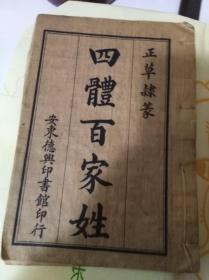 正草隸篆
四體百家姓
安東德興印書館印行